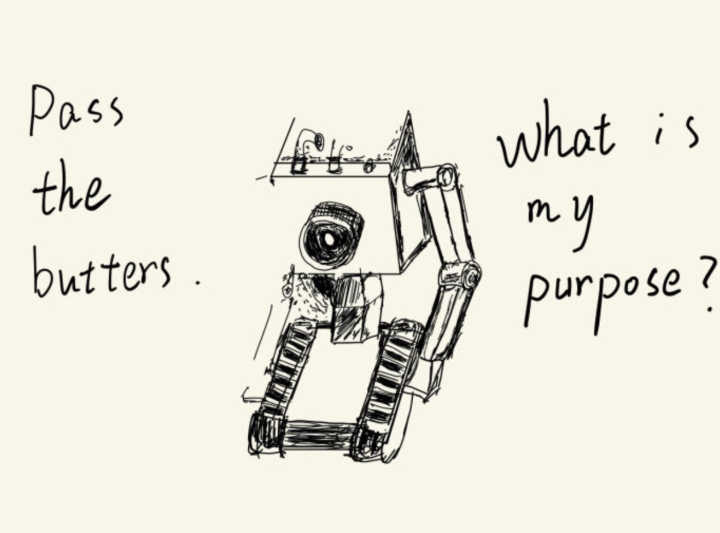 Pass
the
butters.
What is
my
purpose?